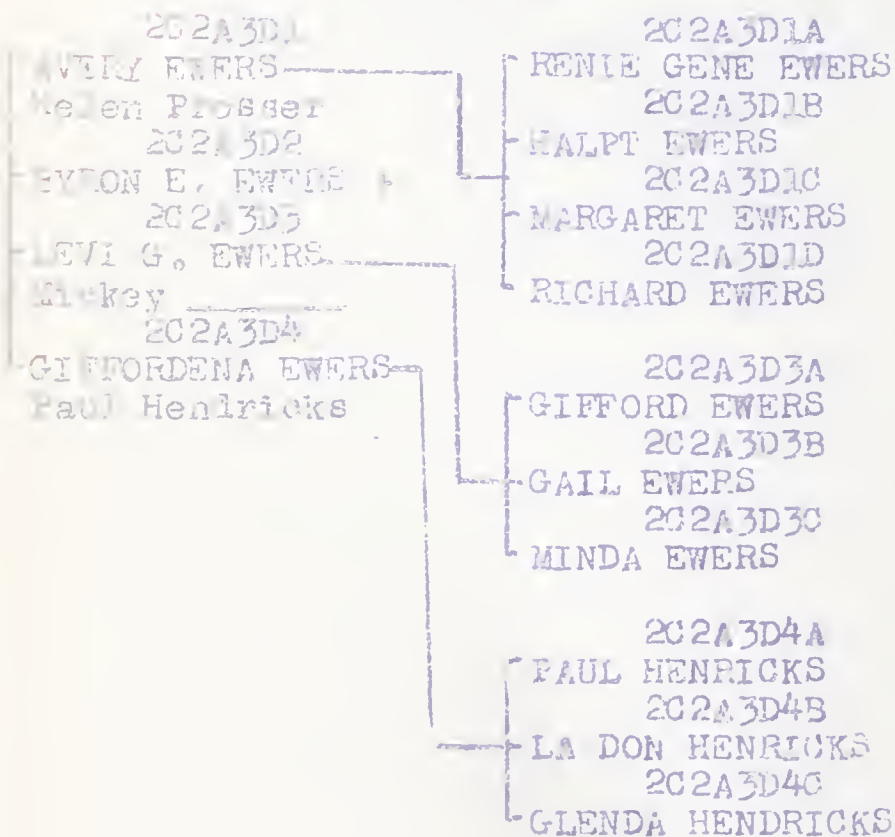 2C2A3D1
AVERY EWERS
Helen Prosser
2C2A3D2
BYRON E. EWERS
2C2A3D3
LEVI G. EWERS
Mickey ________
2C2A3D4
GIFFORDENA EWERS
Paul Hendricks
2C2A3D1A
RENIE GENE EWERS
2C2A3D1B
HALPT EWERS
2C2A3D1C
MARGARET EWERS
2C2A3D1D
RICHARD EWERS
2C2A3D3A
GIFFORD EWERS
2C2A3D3B
GAIL EWERS
2C2A3D3C
MINDA EWERS
2C2A3D4A
PAUL HENRICKS
2C2A3D4B
LA DON HENRICKS
2C2A3D4C
GLENDA HENDRICKS